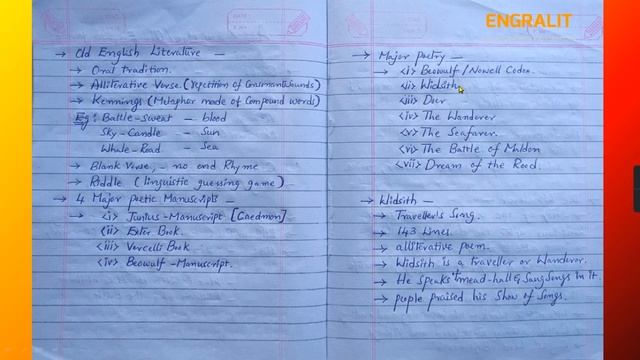 ENGRALIT
→ Old English Literature –
→ Oral tradition.
→ Alliterative Verse. (repetition of Consonant Sounds)
→ Kennings (Metaphor made of Compound words)
Eg: Battle-Sweat – blood
Sky-Candle – Sun
Whale-Road – Sea
→ Blank Verse, – no end Rhyme
→ Riddle (linguistic guessing game) –
→ 4 Major poetic Manuscripts –
→ <i> Junius-Manuscript [Caedmon]
<ii> Exter Book.
<iii> Vercelli Book.
<iv> Beowulf-Manuscript.
→ Major Poetry –
→ <i> Beowulf/Nowell Codex.
<ii> Widsith
<iii> Deor
<iv> The Wanderer
<v> The Seafarer.
<vi> The Battle of Maldon
<vii> Dream of the Rood.
→ Widsith –
→ Traveller's Song.
→ 143 Lines.
→ alliterative poem.
→ Widsith is a Traveller or Wanderer.
→ He Speaks mead-hall & Sang Songs in it.
→ people praised his Show of Songs.